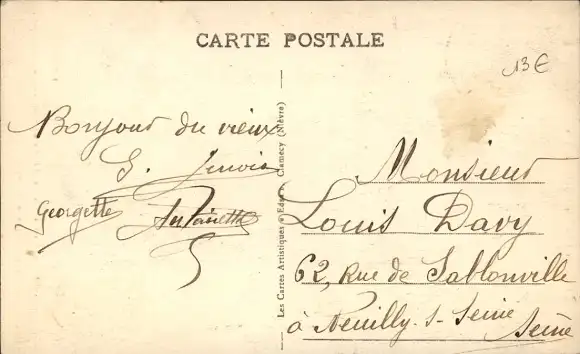 CARTE POSTALE
13€
Bonjour du vieux
G.
Georgette Antoinette
Les Cartes Artistiques Clamecy (Nièvre)
Monsieur
Louis Davy
62, Rue de Sablonville
à Neuilly-s-Seine
Seine